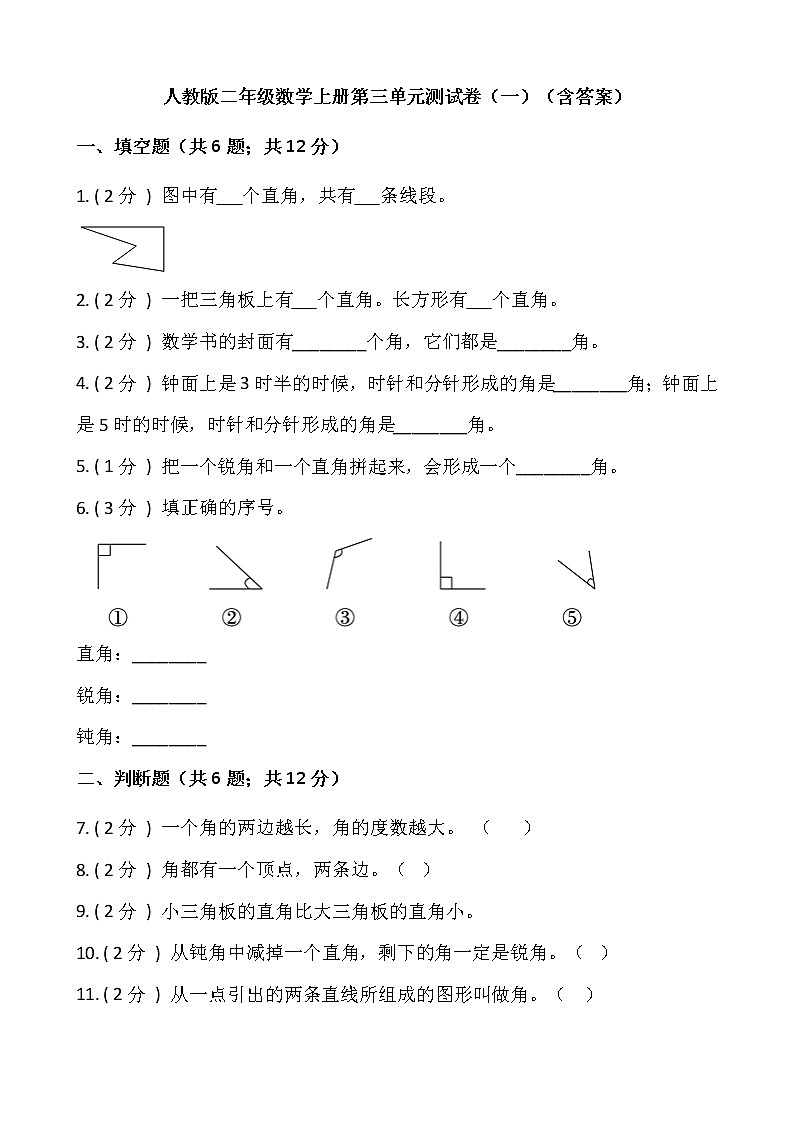 人教版二年级数学上册第三单元测试卷（一）（含答案）
一、填空题（共 6 题；共 12 分）
1. ( 2 分 ) 图中有___个直角，共有___条线段。
2. ( 2 分 ) 一把三角板上有___个直角。长方形有___个直角。
3. ( 2 分 ) 数学书的封面有________个角，它们都是________角。
4. ( 2 分 ) 钟面上是 3 时半的时候，时针和分针形成的角是________角；钟面上
是 5 时的时候，时针和分针形成的角是________角。
5. ( 1 分 ) 把一个锐角和一个直角拼起来，会形成一个________角。
6. ( 3 分 ) 填正确的序号。
① ② ③ ④ ⑤
直角：________
锐角：________
钝角：________
二、判断题（共 6 题；共 12 分）
7. ( 2 分 ) 一个角的两边越长，角的度数越大。 （ ）
8. ( 2 分 ) 角都有一个顶点，两条边。（ ）
9. ( 2 分 ) 小三角板的直角比大三角板的直角小。
10. ( 2 分 ) 从钝角中减掉一个直角，剩下的角一定是锐角。（ ）
11. ( 2 分 ) 从一点引出的两条直线所组成的图形叫做角。（ ）